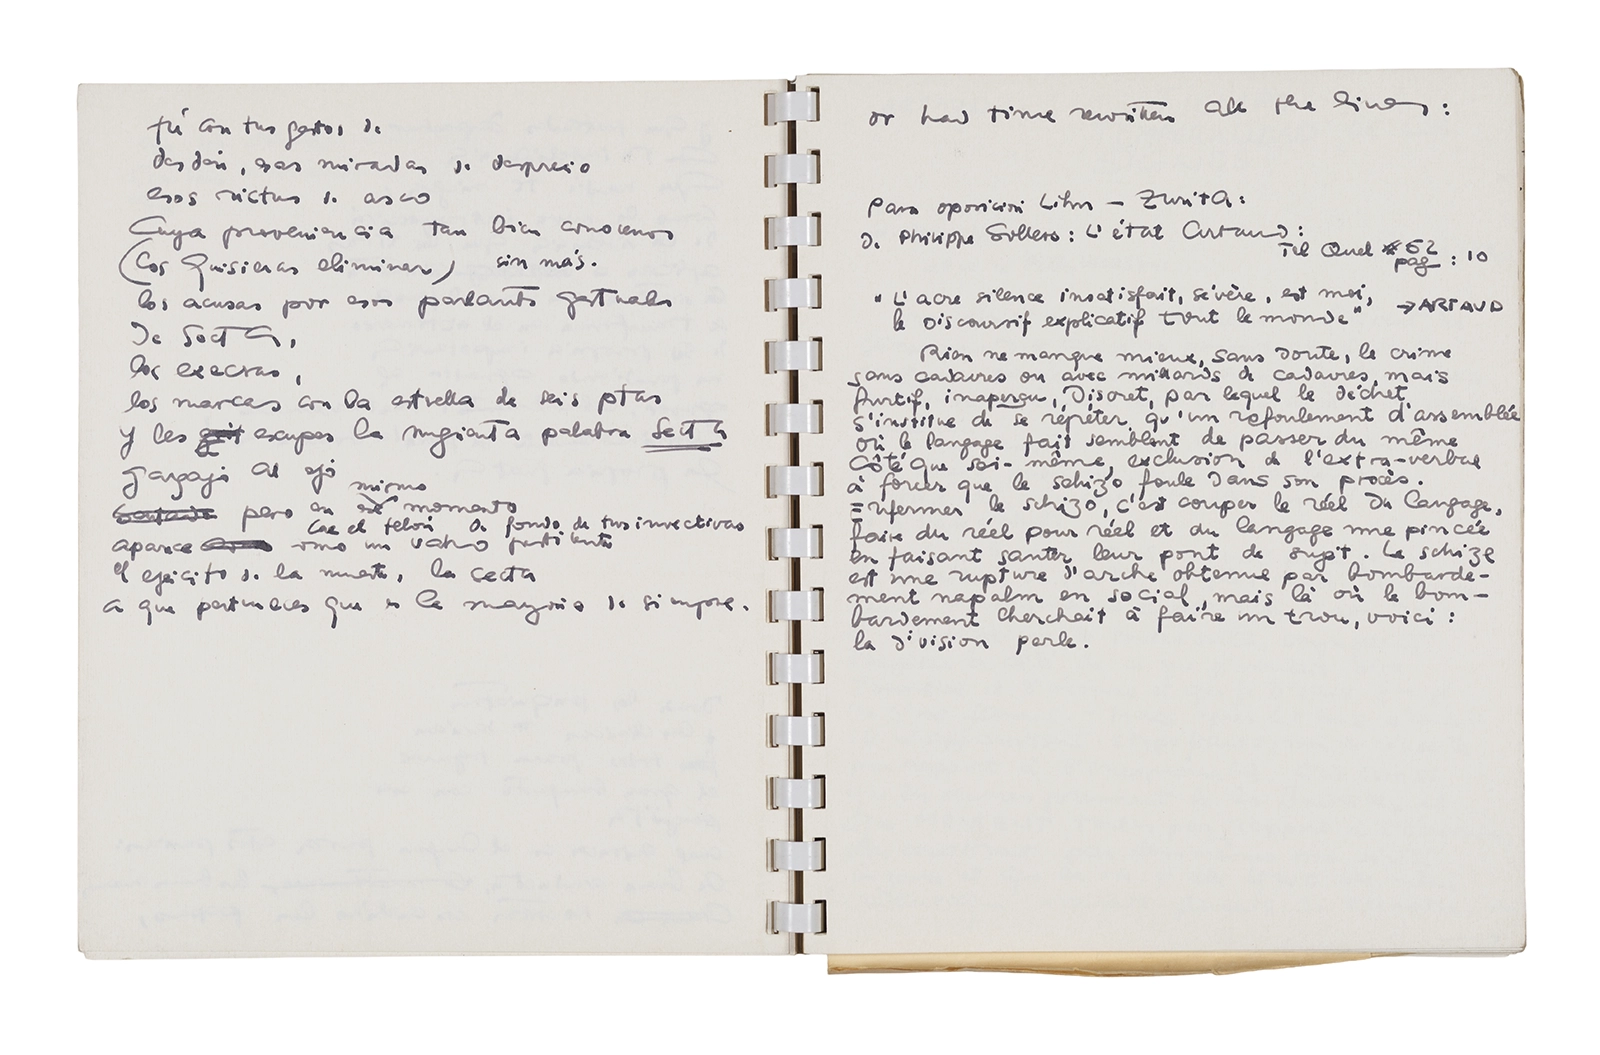 tú con tus gestos de
desdén, esas miradas de desprecio
esos rictus de asco
Cuya proveniencia tan bien conocemos
(los quisieras eliminar) sin más.
los acusas por esos parlantes gestuales
De Secta,
los execras,
los marcas con la estrella de seis ptas
y les escupes la mugienta palabra Secta
gargajo al ojo
pero en mismo momento
cae el telón de fondo de tus invectivas
aparece como un vaho pestilente
el ejército de la muerte, la secta
a que perteneces que es la mayoría de siempre.
or had time rewritten all the lines:
Para oposición Lihn - Zurita:
D. Philippe Sollers: L'état Artaud:
Tel Quel # 52
pag : 10
"L'acre silence insatisfait, sévère, est moi,
le Discoursif explicatif tout le monde" → ARTAUD
Rien ne manque mieux, sans doute, le crime
sans cadavres ou avec milliards de cadavres, mais
furtif, inaperçu, Discret, par lequel le déchet
s'institue de se répéter qu'un refoulement d'assemblée
où le langage fait semblant de passer du même
côté que soi-même, exclusion de l'extra-verbal
à forcer que le schizo foule dans son procès.
Enfermer le schizo, c'est couper le réel du langage,
faire du réel pour réel et du langage une pincée
en faisant sauter leur pont de sujet. Le schize
est une rupture d'arche obtenue par bombarde-
ment napalm en social, mais là où le bom-
bardement cherchait à faire un trou, voici :
la division parle.